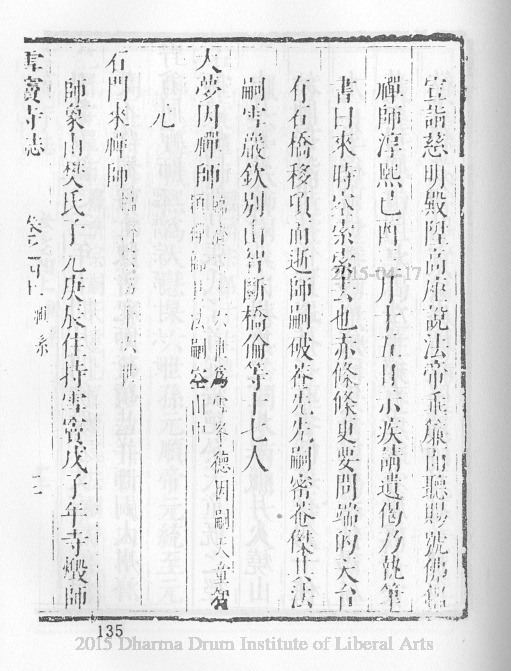 宣詣慈明殿陞高座說法帝垂簾而聽賜號佛鑑
禪師淳熙己酉 月十五日示疾請遺偈乃執筆
書曰來時空索索去也赤條條更要問端的天台
有石橋移頃而逝師嗣破菴先先嗣密菴傑其法
嗣雪巖欽別山智斷橋倫等十七人
大夢因禪師 為雪峯德因嗣天童智
法嗣 山
元
石門來禪師
師象山樊氏子元庚辰住持雪竇戊子年寺燬師
雪竇寺志 卷之四上
135
2015-04-17
2015 Dharma Drum Institute of Liberal Arts